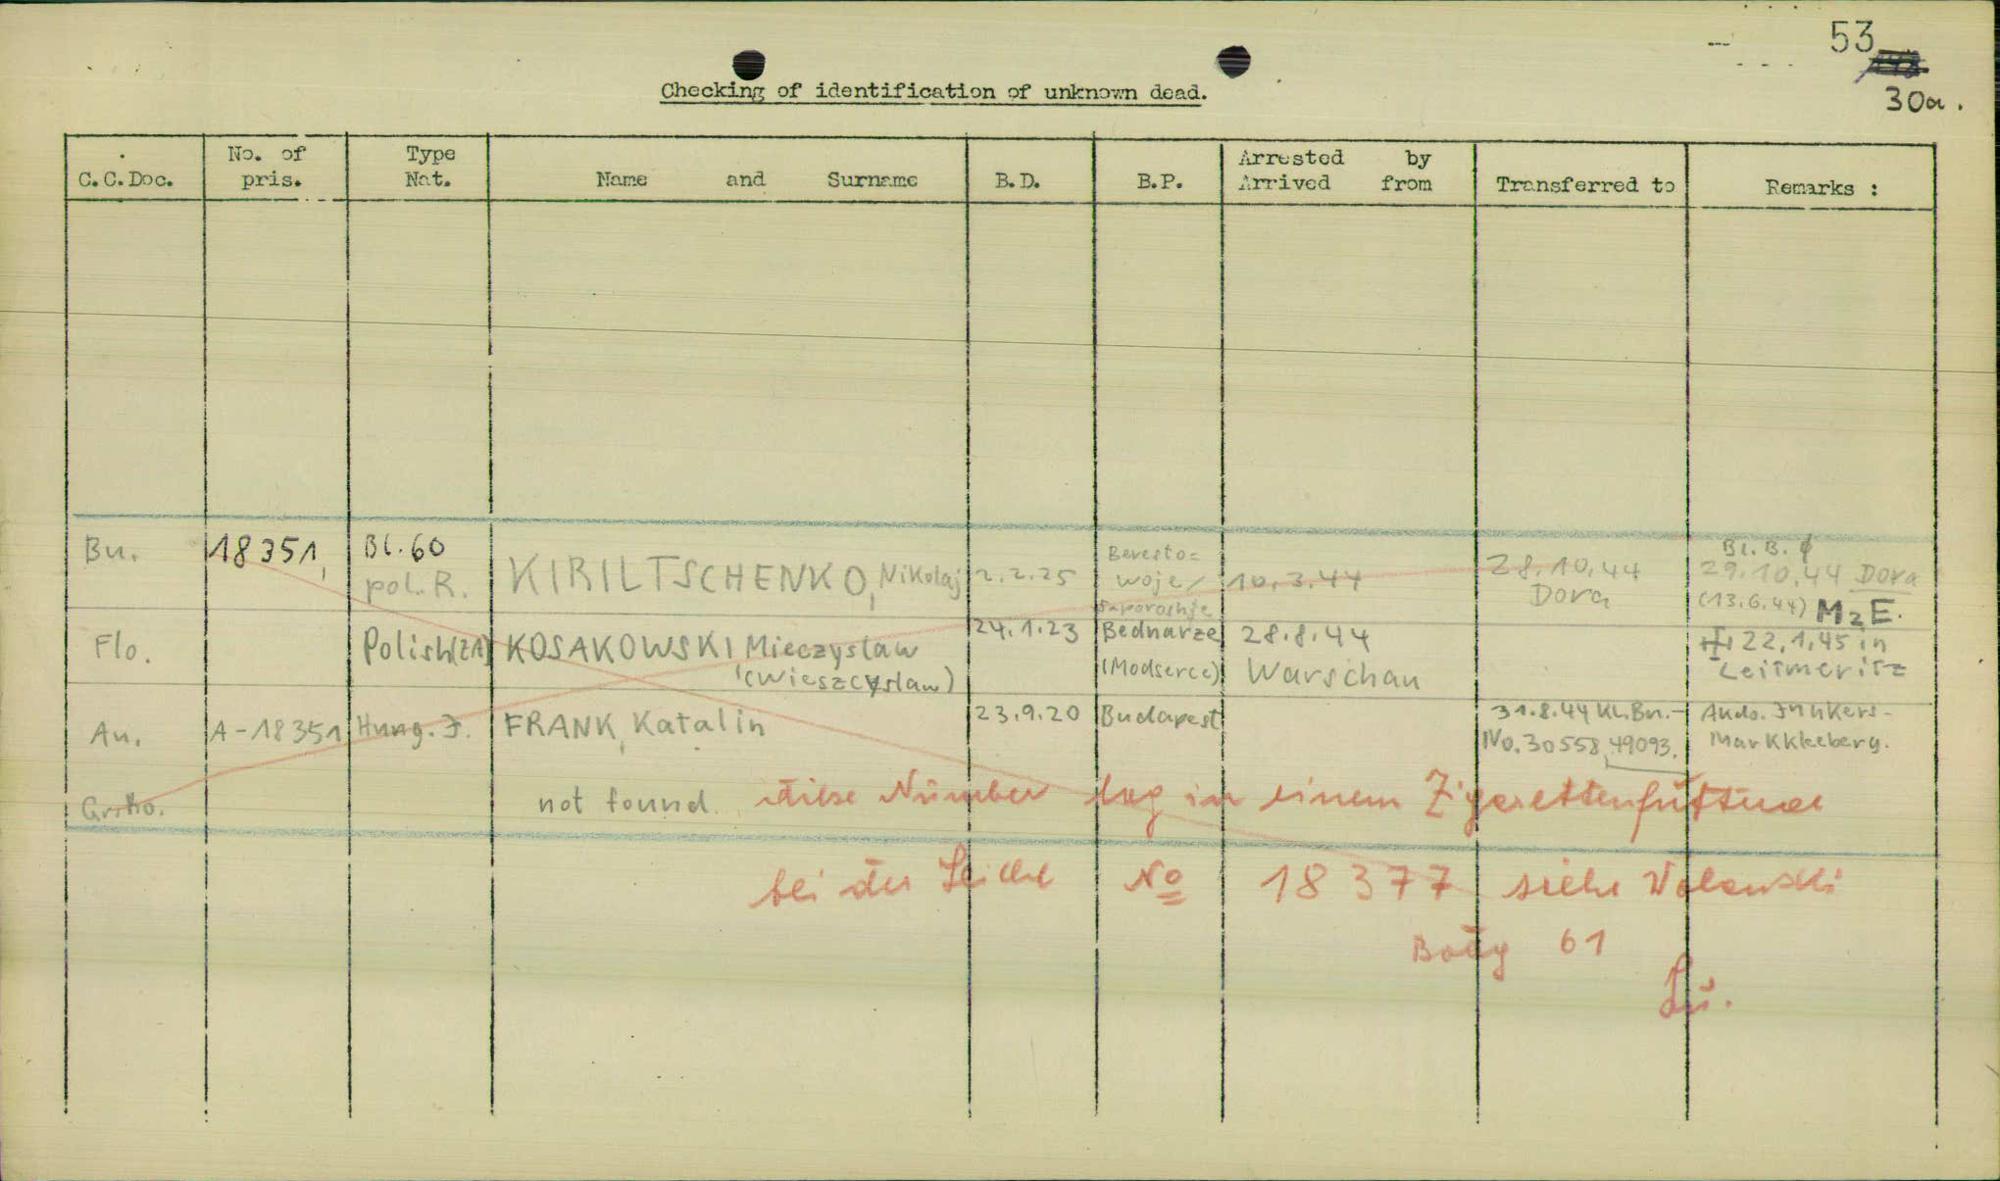 53
30a.
Checking of identification of unknown dead.
C.C.Doc. No. of pris. Type Nat. Name and Surname B.D. B.P. Arrested by Arrived from Transferred to Remarks :
Bu. 18351, Bl.60 pol. R. KIRILTSCHENKO, Nikolaj 2.2.25 Beresto= woje/ Saporoshje 10.3.44 28.10.44 Dora Bl. B. 29.10.44 Dora (13.6.44) M2E.
Flo. Polish(ZA) KOSAKOWSKI Mieczyslaw (Wieszcyslaw) 24.1.23 Bednarze (Modserce) 28.8.44 Warschau 22.1.45 in Leitmeritz
Au. A-18351 Hung. J. FRANK, Katalin 23.9.20 Budapest 31.8.44 KL.Bu.- No. 30558, 49093. Kdo. Junkers- Markkleeberg.
not found. diese Nummer lag in einem Zigarettenfutteral
bei der Leiche No 18377 siehe Wolanski
Body 61
Lü.